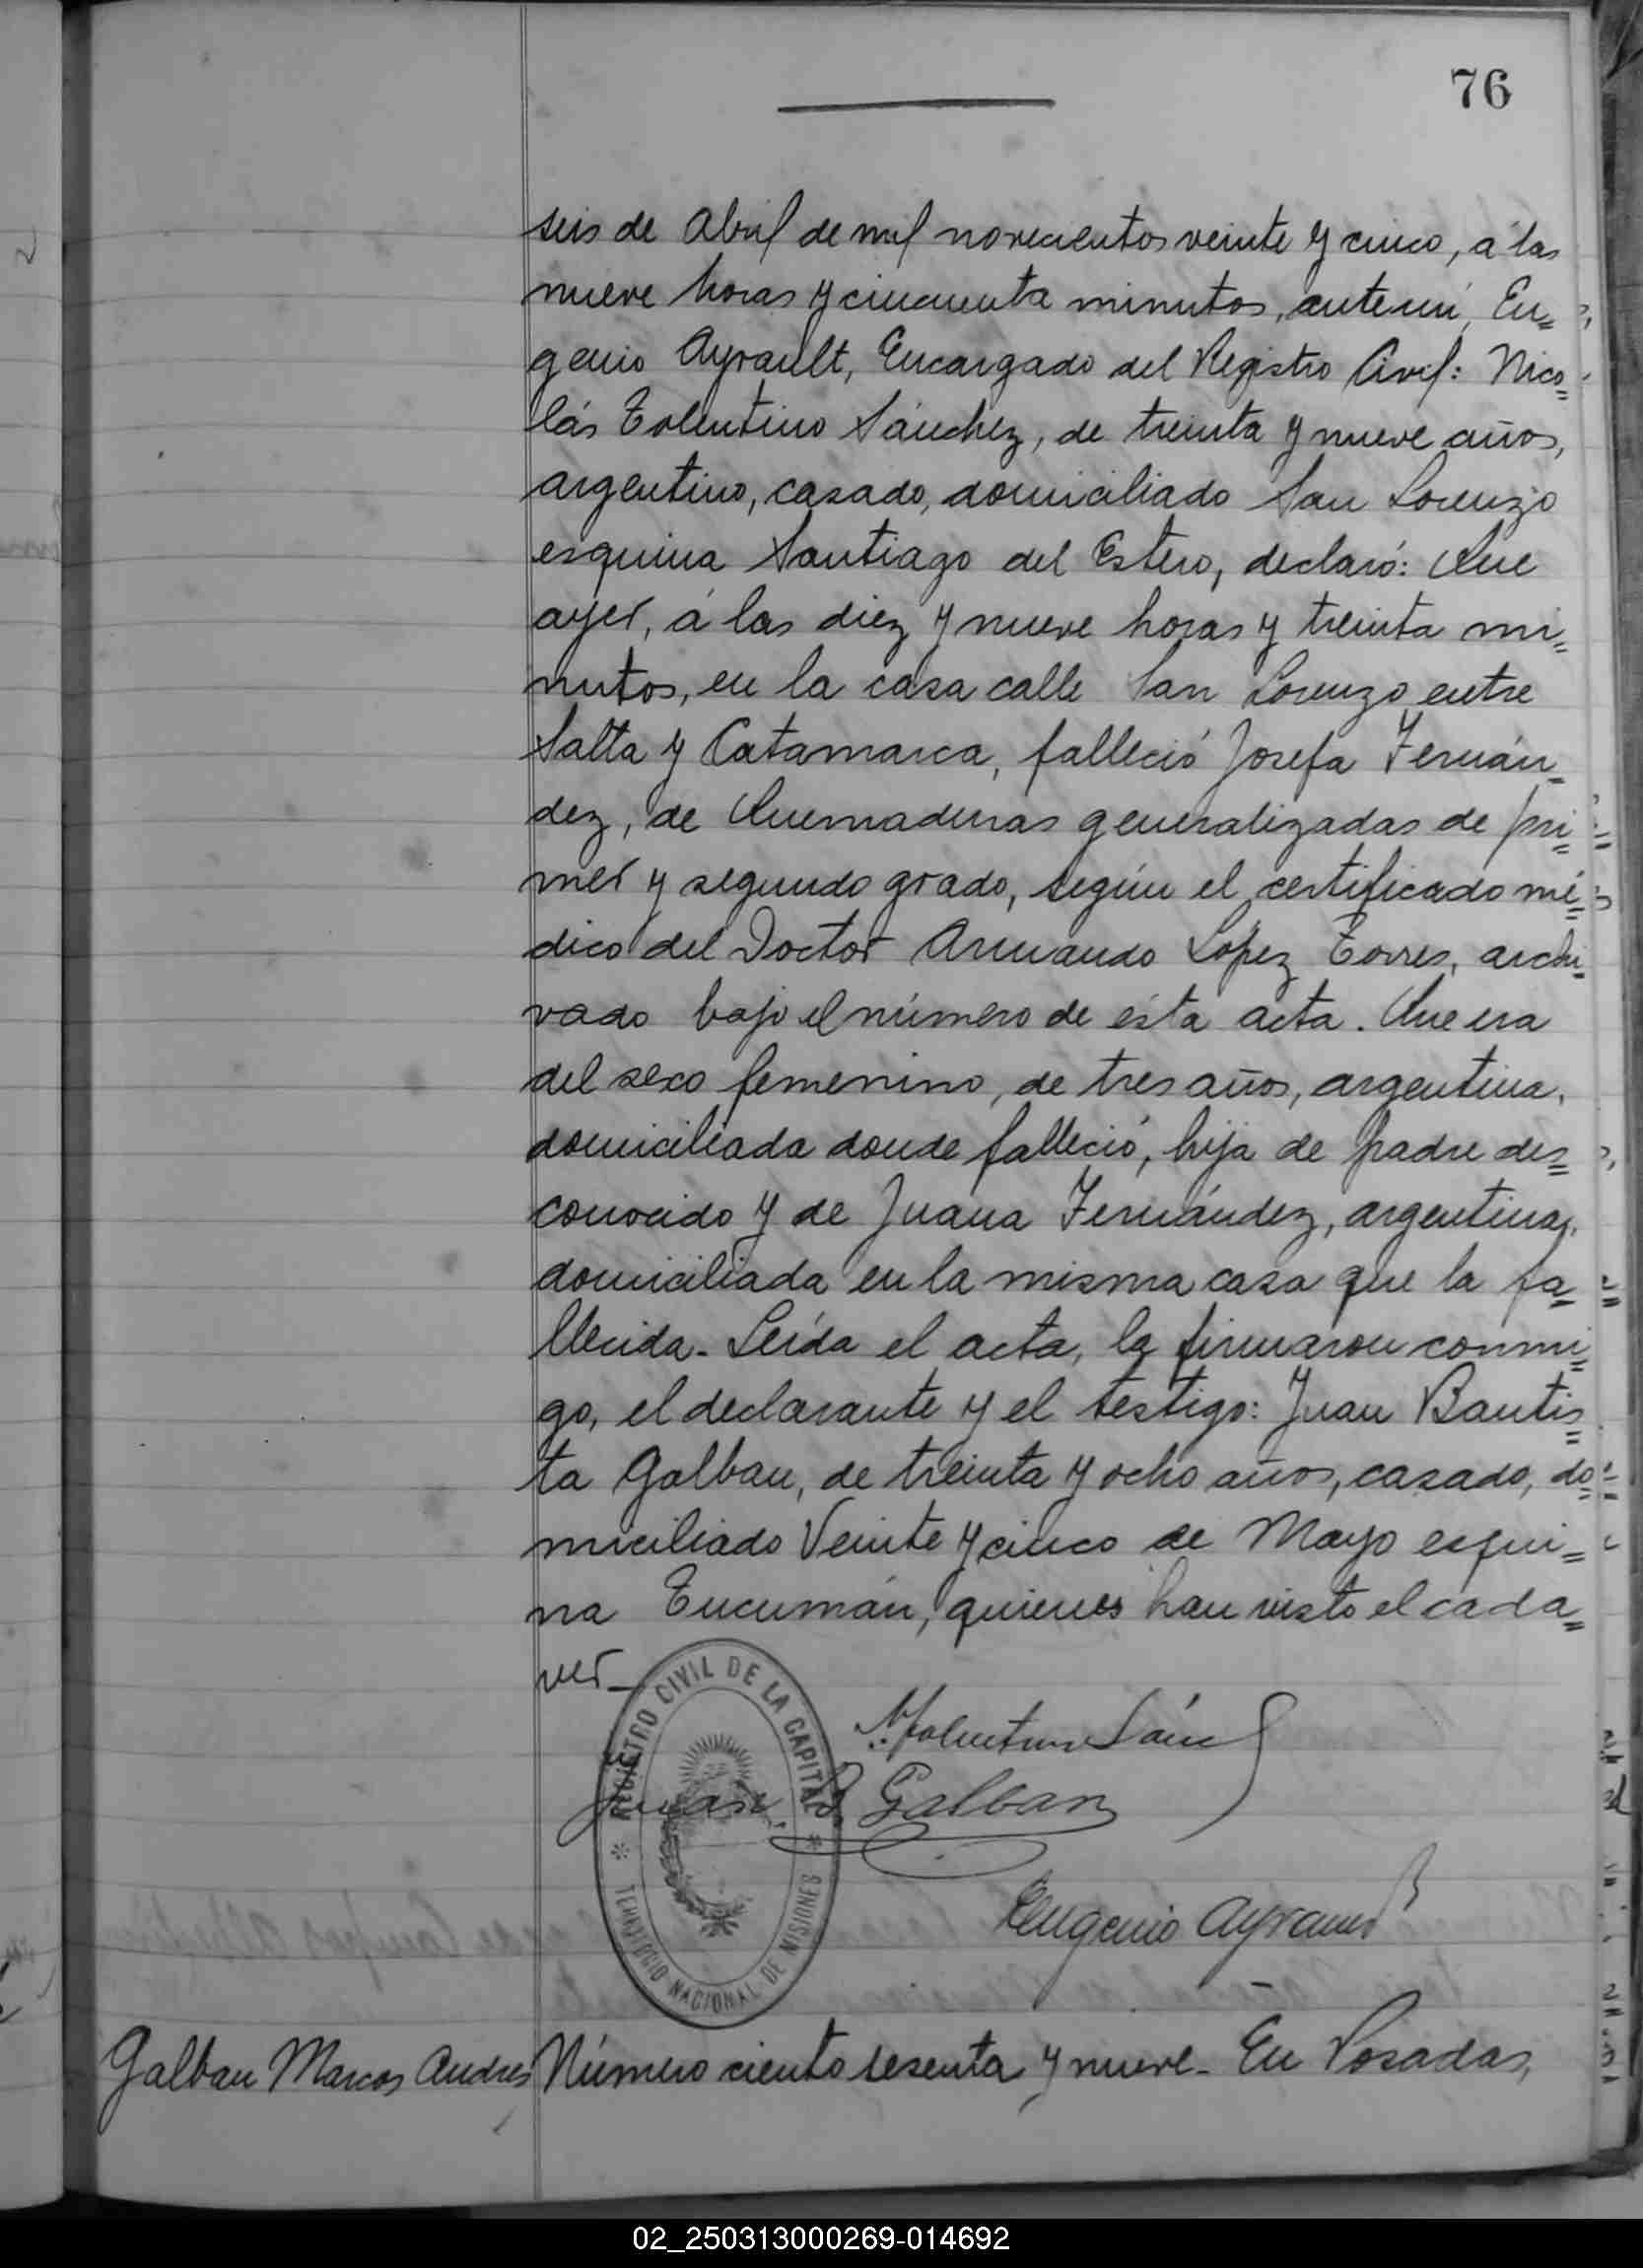 76
seis de Abril de mil novecientos veinte y cinco, á las
nueve horas y cincuenta minutos, ante mí, Eu=
genio Ayrault, Encargado del Registro Civil: Nico=
lás Tolentino Sánchez, de treinta y nueve años,
argentino, casado, domiciliado San Lorenzo
esquina Santiago del Estero, declaró: Que
ayer, á las diez y nueve horas y treinta mi=
nutos, en la casa calle San Lorenzo entre
Salta y Catamarca, falleció Josefa Fernán=
dez, de Quemaduras generalizadas de pri=
mer y segundo grado, según el certificado mé=
dico del Doctor Armando López Torres, archi=
vado bajo el número de ésta acta. Que era
del sexo femenino, de tres años, argentina,
domiciliada donde falleció, hija de padre des=
conocido y de Juana Fernández, argentina,
domiciliada en la misma casa que la fa=
llecida. Leída el acta, la firmaron conmi=
go, el declarante y el testigo: Juan Bautis=
ta Galban, de treinta y ocho años, casado, do=
miciliado Veinte y cinco de Mayo esqui=
na Tucumán, quienes han visto el cadá=
ver_
REGISTRO CIVIL DE LA CAPITAL
TERRITORIO NACIONAL DE MISIONES
N. Tolentino Sánc
Juan B. Galban
Eugenio Ayrault
Galban Marcos Andres
Número ciento sesenta y nueve_ En Posadas,
02_250313000269-014692